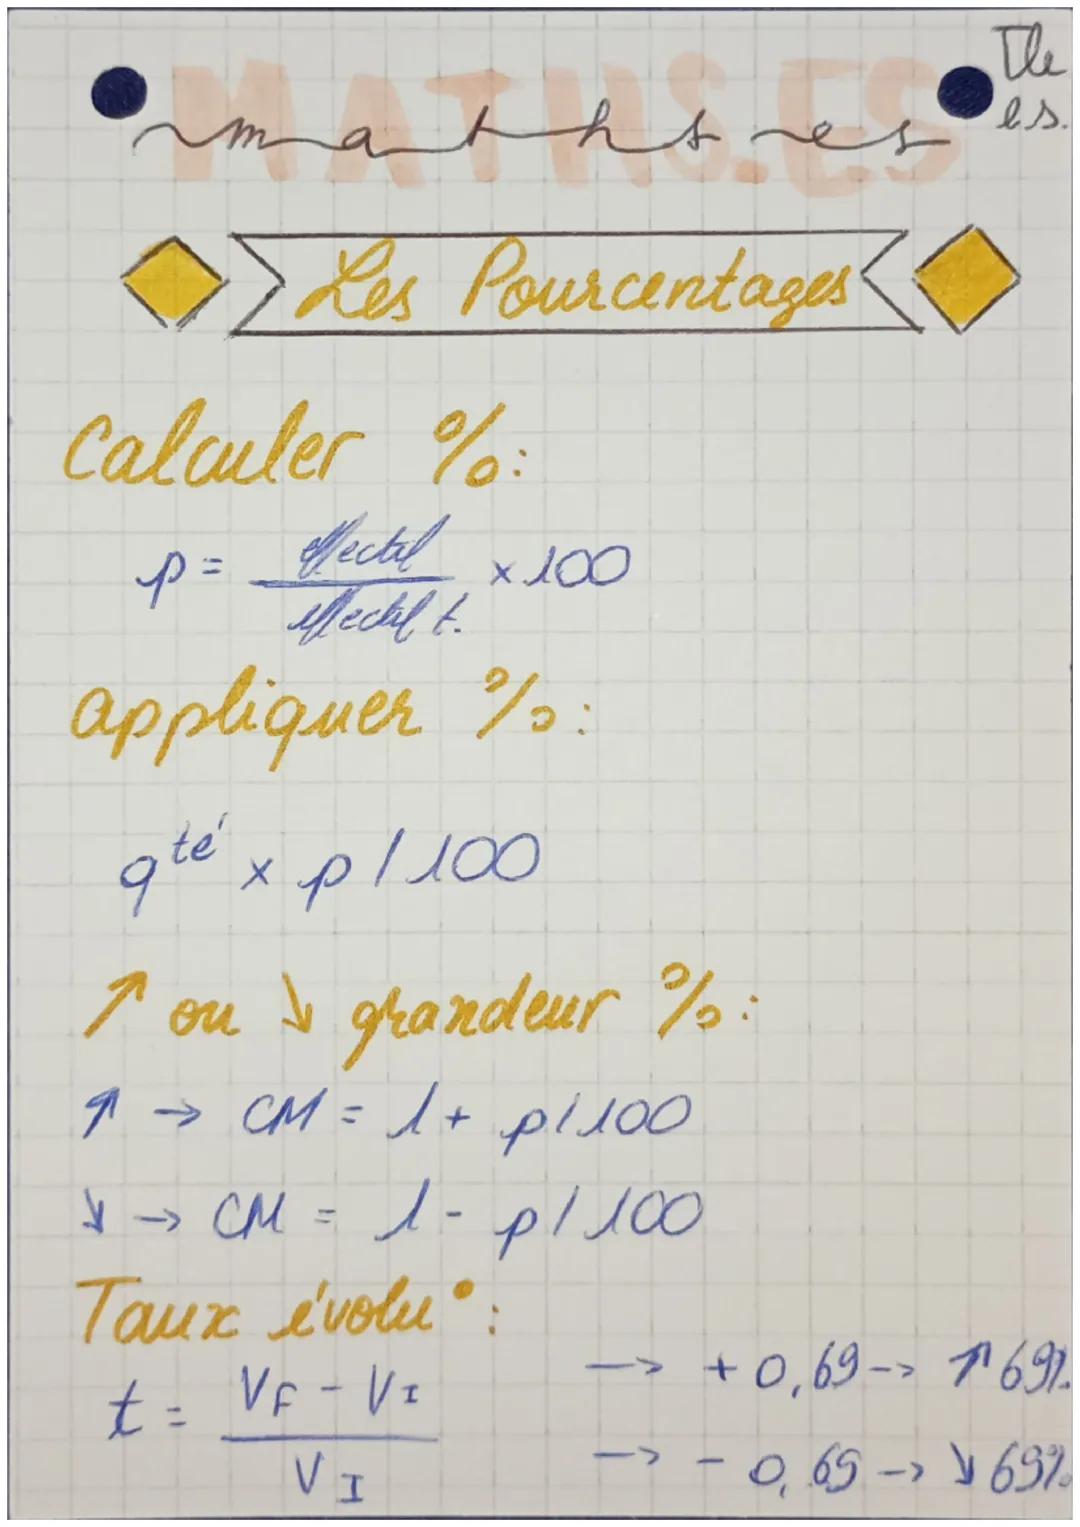 Tle
es.
MATHS.ES
maths es
Les Pourcentages
Calculer %:
p = effectif / effectif t. × 100
appliquer %:
qté × p / 100
↑ ou ↓ grandeur %:
↑ → CM = 1 + p/100
↘ → CM = 1 - p/100
Taux évolu°:
t = VF - VI / VI
→ + 0,69 → ↑ 69%
→ - 0,69 → ↘ 69%